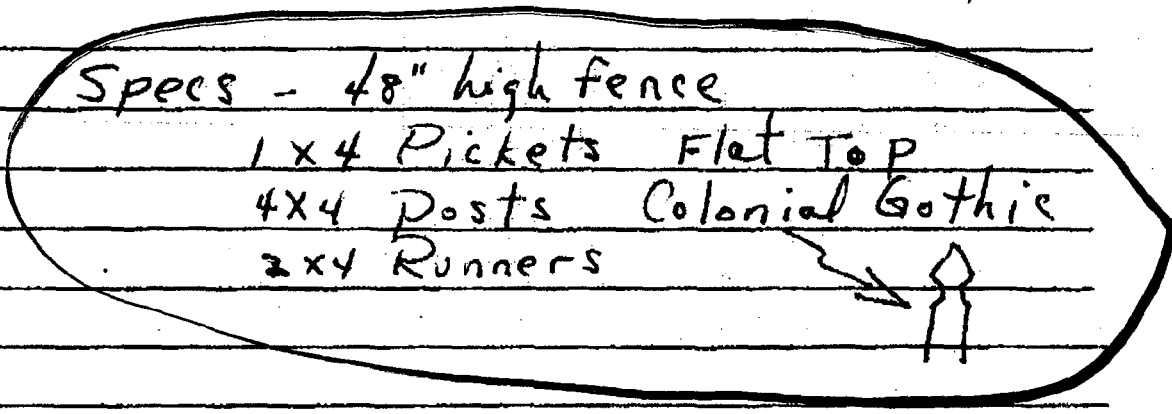 Specs - 48" high fence
1x4 Pickets Flat Top
4x4 Posts Colonial Gothic
2x4 Runners